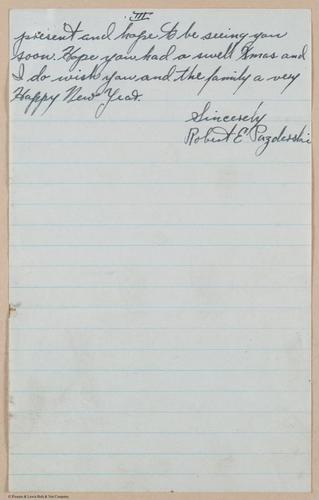 III
present and hope to be seeing you
soon. Hope you had a swell Xmas and
I do wish you and the family a very
Happy New Year.
Sincerely
Robert E. Pazderski
© Russell & Lewis Bolt & Nut Company